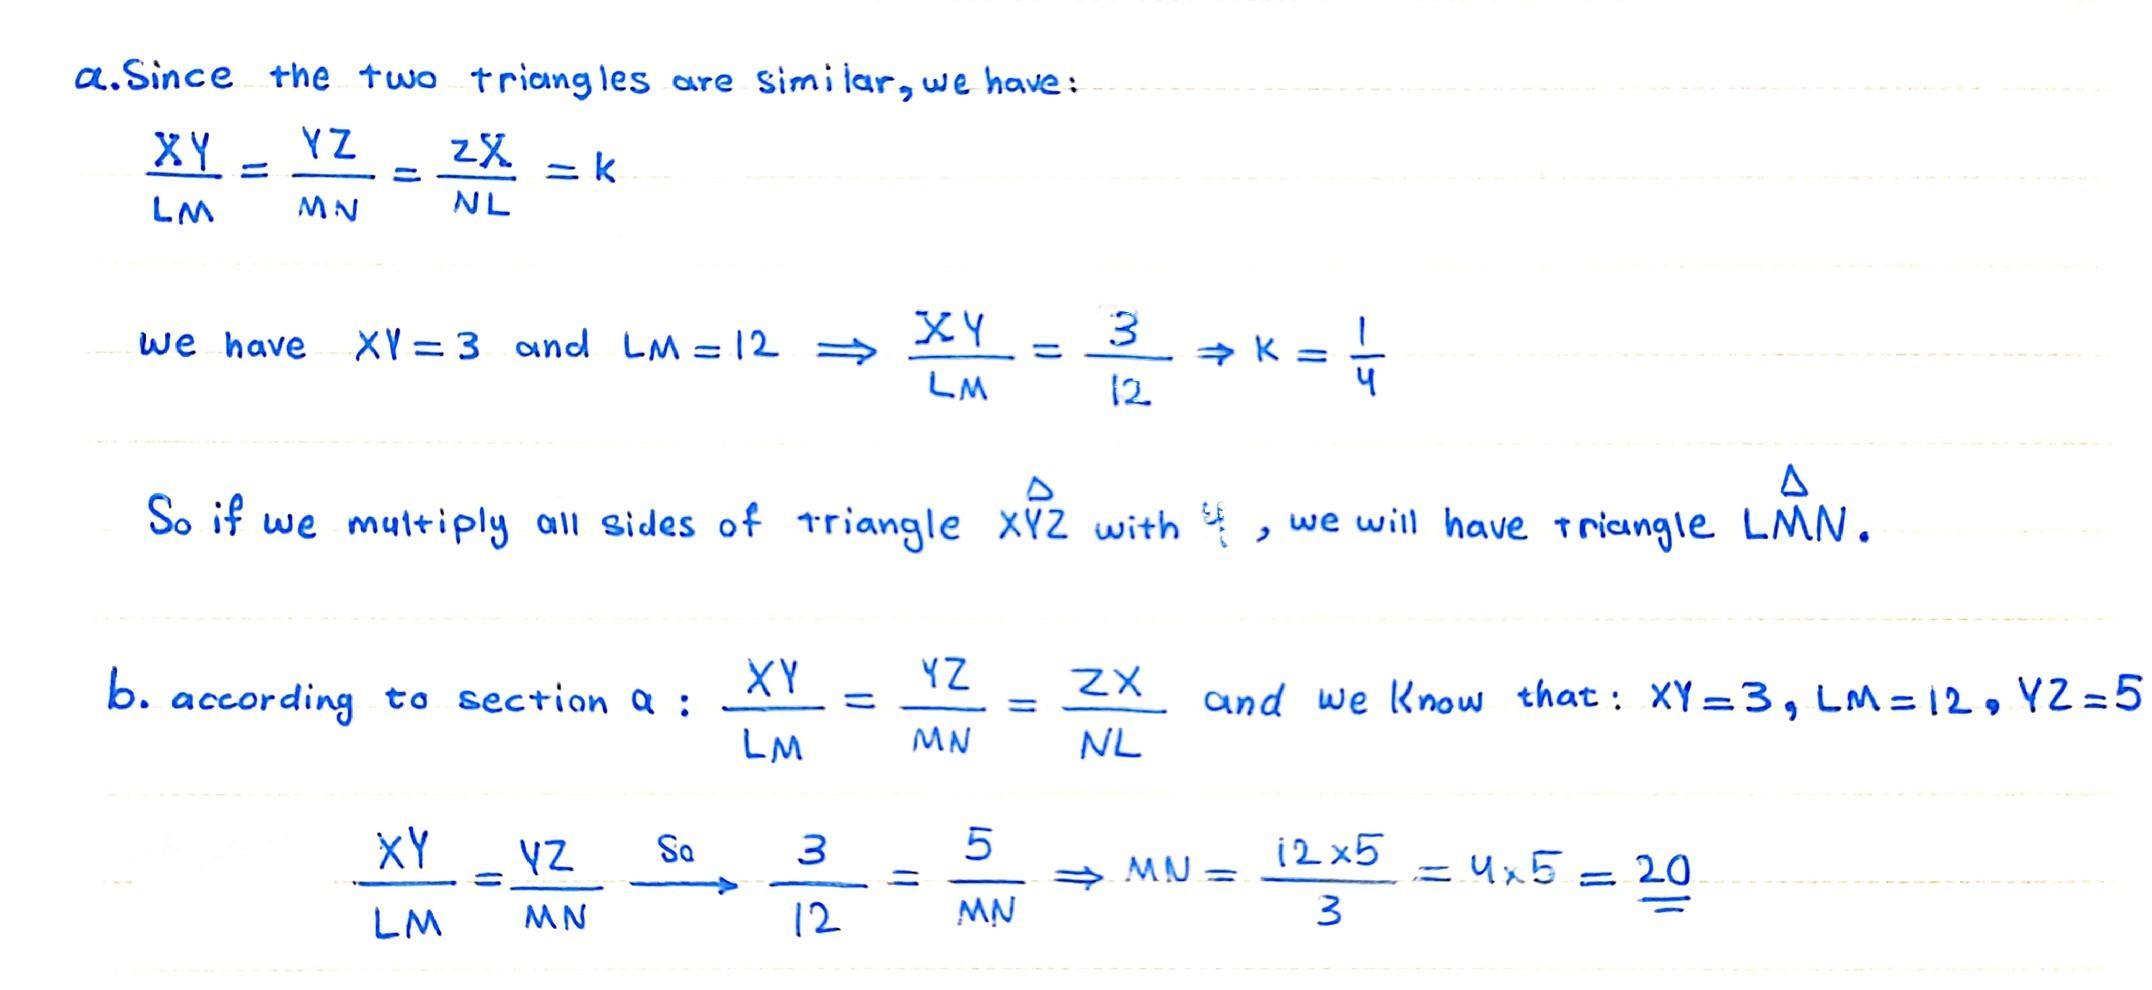 a. Since the two triangles are similar, we have:
XY/LM = YZ/MN = ZX/NL = k
we have XY = 3 and LM = 12 ⇒ XY/LM = 3/12 ⇒ K = 1/4
So if we multiply all sides of triangle XYZ with 4, we will have triangle LMN.
b. according to section a : XY/LM = YZ/MN = ZX/NL and we know that: XY = 3, LM = 12, YZ = 5
XY/LM = YZ/MN So → 3/12 = 5/MN ⇒ MN = 12×5/3 = 4×5 = 20